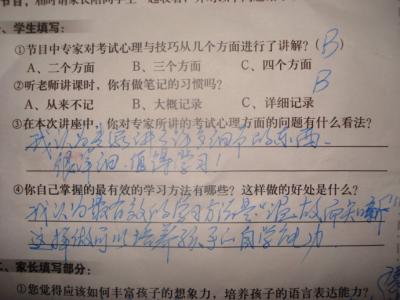 节目,
一、学生填写:
①节目中专家对考试心理与技巧从几个方面进行了讲解?(B)
A、二个方面 B、三个方面 C、四个方面
②听老师讲课时,你有做笔记的习惯吗? B
A、从来不记 B、大概记录 C、详细记录
③在本次讲座中,你对专家所讲的考试心理方面的问题有什么看法?
我认为专家讲了许多细节的东西、
很详细、值得学习!
④你自己掌握的最有效的学习方法有哪些?这样做的好处是什么?
我认为最有效的学习方法是“温故而知新”
这样做可以培养孩子的自学能力
二、家长填写部分:
①您觉得应该如何丰富孩子的想象力,培养孩子的语言表达能力?